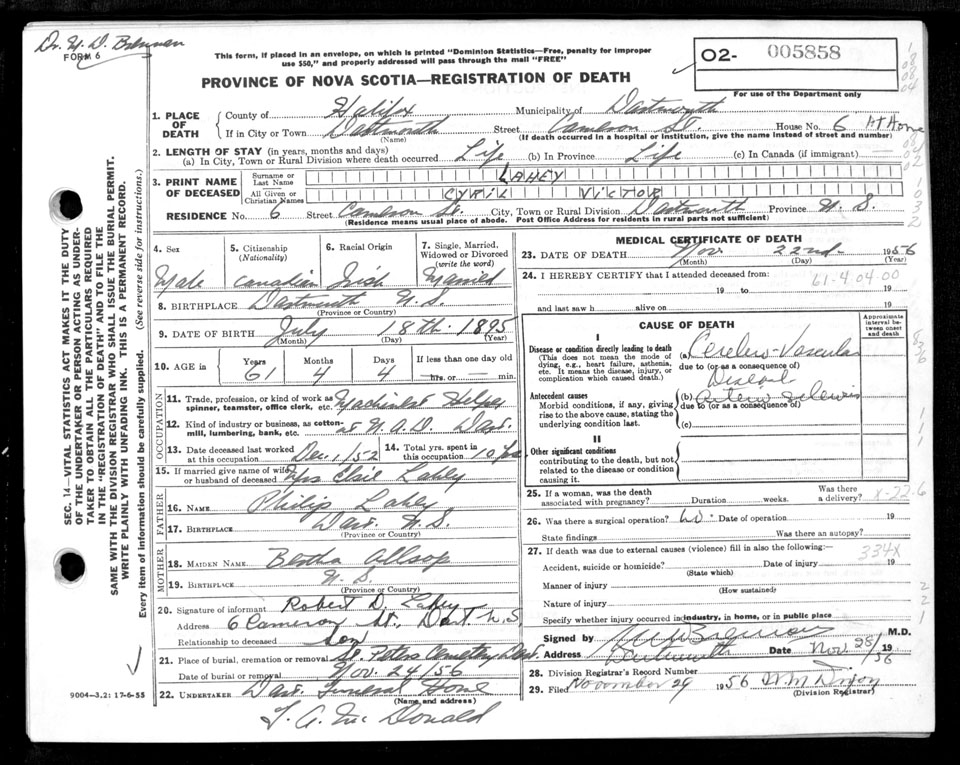 Dr. H. D. Brennan
FORM 6
This form, if placed in an envelope, on which is printed "Dominion Statistics—Free, penalty for improper
use $50," and properly addressed will pass through the mail "FREE"
O2- 005858
For use of the Department only
PROVINCE OF NOVA SCOTIA—REGISTRATION OF DEATH
1. PLACE OF DEATH County of Halifax Municipality of Dartmouth
If in City or Town Dartmouth (Name) Street Cameron St. House No. 6 At Home
(If death occurred in a hospital or institution, give the name instead of street and number)
2. LENGTH OF STAY (in years, months and days)
(a) In City, Town or Rural Division where death occurred Life (b) In Province Life (c) In Canada (if immigrant)
3. PRINT NAME OF DECEASED Surname or Last Name LAHEY
All Given or Christian Names CYRIL VICTOR
RESIDENCE No. 6 Street Cameron St. City, Town or Rural Division Dartmouth Province N. S.
(Residence means usual place of abode. Post Office Address for residents in rural parts not sufficient)
4. Sex Male
5. Citizenship (Nationality) Canadian
6. Racial Origin Irish
7. Single, Married, Widowed or Divorced (write the word) Married
8. BIRTHPLACE Dartmouth N S
(Province or Country)
9. DATE OF BIRTH July 18th 1895
(Month) (Day) (Year)
10. AGE in Years 61 Months 4 Days 4 If less than one day old hrs. or min.
OCCUPATION
11. Trade, profession, or kind of work as spinner, teamster, office clerk, etc. Machinist Helper
12. Kind of industry or business, as cotton-mill, lumbering, bank, etc. at N.A.D. Dart.
13. Date deceased last worked at this occupation Dec. 1/52
14. Total yrs. spent in this occupation 10 yrs
15. If married give name of wife or husband of deceased Mrs Elsie Lahey
FATHER
16. NAME Philip Lahey
17. BIRTHPLACE Dart. N. S.
(Province or Country)
MOTHER
18. MAIDEN NAME Bertha Allsop
19. BIRTHPLACE N. S.
(Province or Country)
20. Signature of informant Robert D. Lahey
Address 6 Cameron St. Dart. N. S.
Relationship to deceased Son
21. Place of burial, cremation or removal St. Peters Cemetery Dart.
Date of burial or removal Nov. 24/56
22. UNDERTAKER Dart Funeral Home
(Name and address)
T. A. Mc Donald
9004—3.2: 17-6-55
SEC. 14—VITAL STATISTICS ACT MAKES IT THE DUTY
OF THE UNDERTAKER OR PERSON ACTING AS UNDER-
TAKER TO OBTAIN ALL THE PARTICULARS REQUIRED
IN THE "REGISTRATION OF DEATH" AND TO FILE THE
SAME WITH THE DIVISION REGISTRAR WHO SHALL ISSUE THE BURIAL PERMIT.
WRITE PLAINLY WITH UNFADING INK. THIS IS A PERMANENT RECORD.
Every item of information should be carefully supplied. (See reverse side for instructions.)
MEDICAL CERTIFICATE OF DEATH
23. DATE OF DEATH Nov 22nd 1956
(Month) (Day) (Year)
24. I HEREBY CERTIFY that I attended deceased from:
61-4 04 00
19 to 19
and last saw h alive on 19
CAUSE OF DEATH
Approximate interval between onset and death
I
Disease or condition directly leading to death
(This does not mean the mode of dying, e.g., heart failure, asthenia, etc. It means the disease, injury, or complication which caused death.)
(a) Cerebro-Vascular
due to (or as a consequence of)
Disease
Antecedent causes
Morbid conditions, if any, giving rise to the above cause, stating the underlying condition last.
(b) Arterio Sclerosis
due to (or as a consequence of)
(c)
II
Other significant conditions
contributing to the death, but not related to the disease or condition causing it.
25. If a woman, was the death associated with pregnancy? Duration weeks. Was there a delivery? X-22.6
26. Was there a surgical operation? No. Date of operation 19
State findings Was there an autopsy?
27. If death was due to external causes (violence) fill in also the following:— 334X
Accident, suicide or homicide? Date of injury 19
(State which)
Manner of injury
(How sustained)
Nature of injury
Specify whether injury occurred in industry, in home, or in public place
Signed by H D Brennan M.D.
Address Dartmouth Date Nov. 25/56 19
28. Division Registrar's Record Number
29. Filed November 29 1956 W. M. Dixon
(Division Registrar)